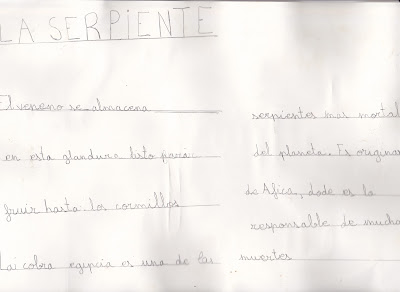 LA SERPIENTE
El veneno se almacena
en esta glandura listo para
fruir hasta los cormillos.
Lai cobra egipcia es una de las
serpientes mas mortal
del planeta. Es originar
de Africa, dode es la
responsable de mucha
muertes